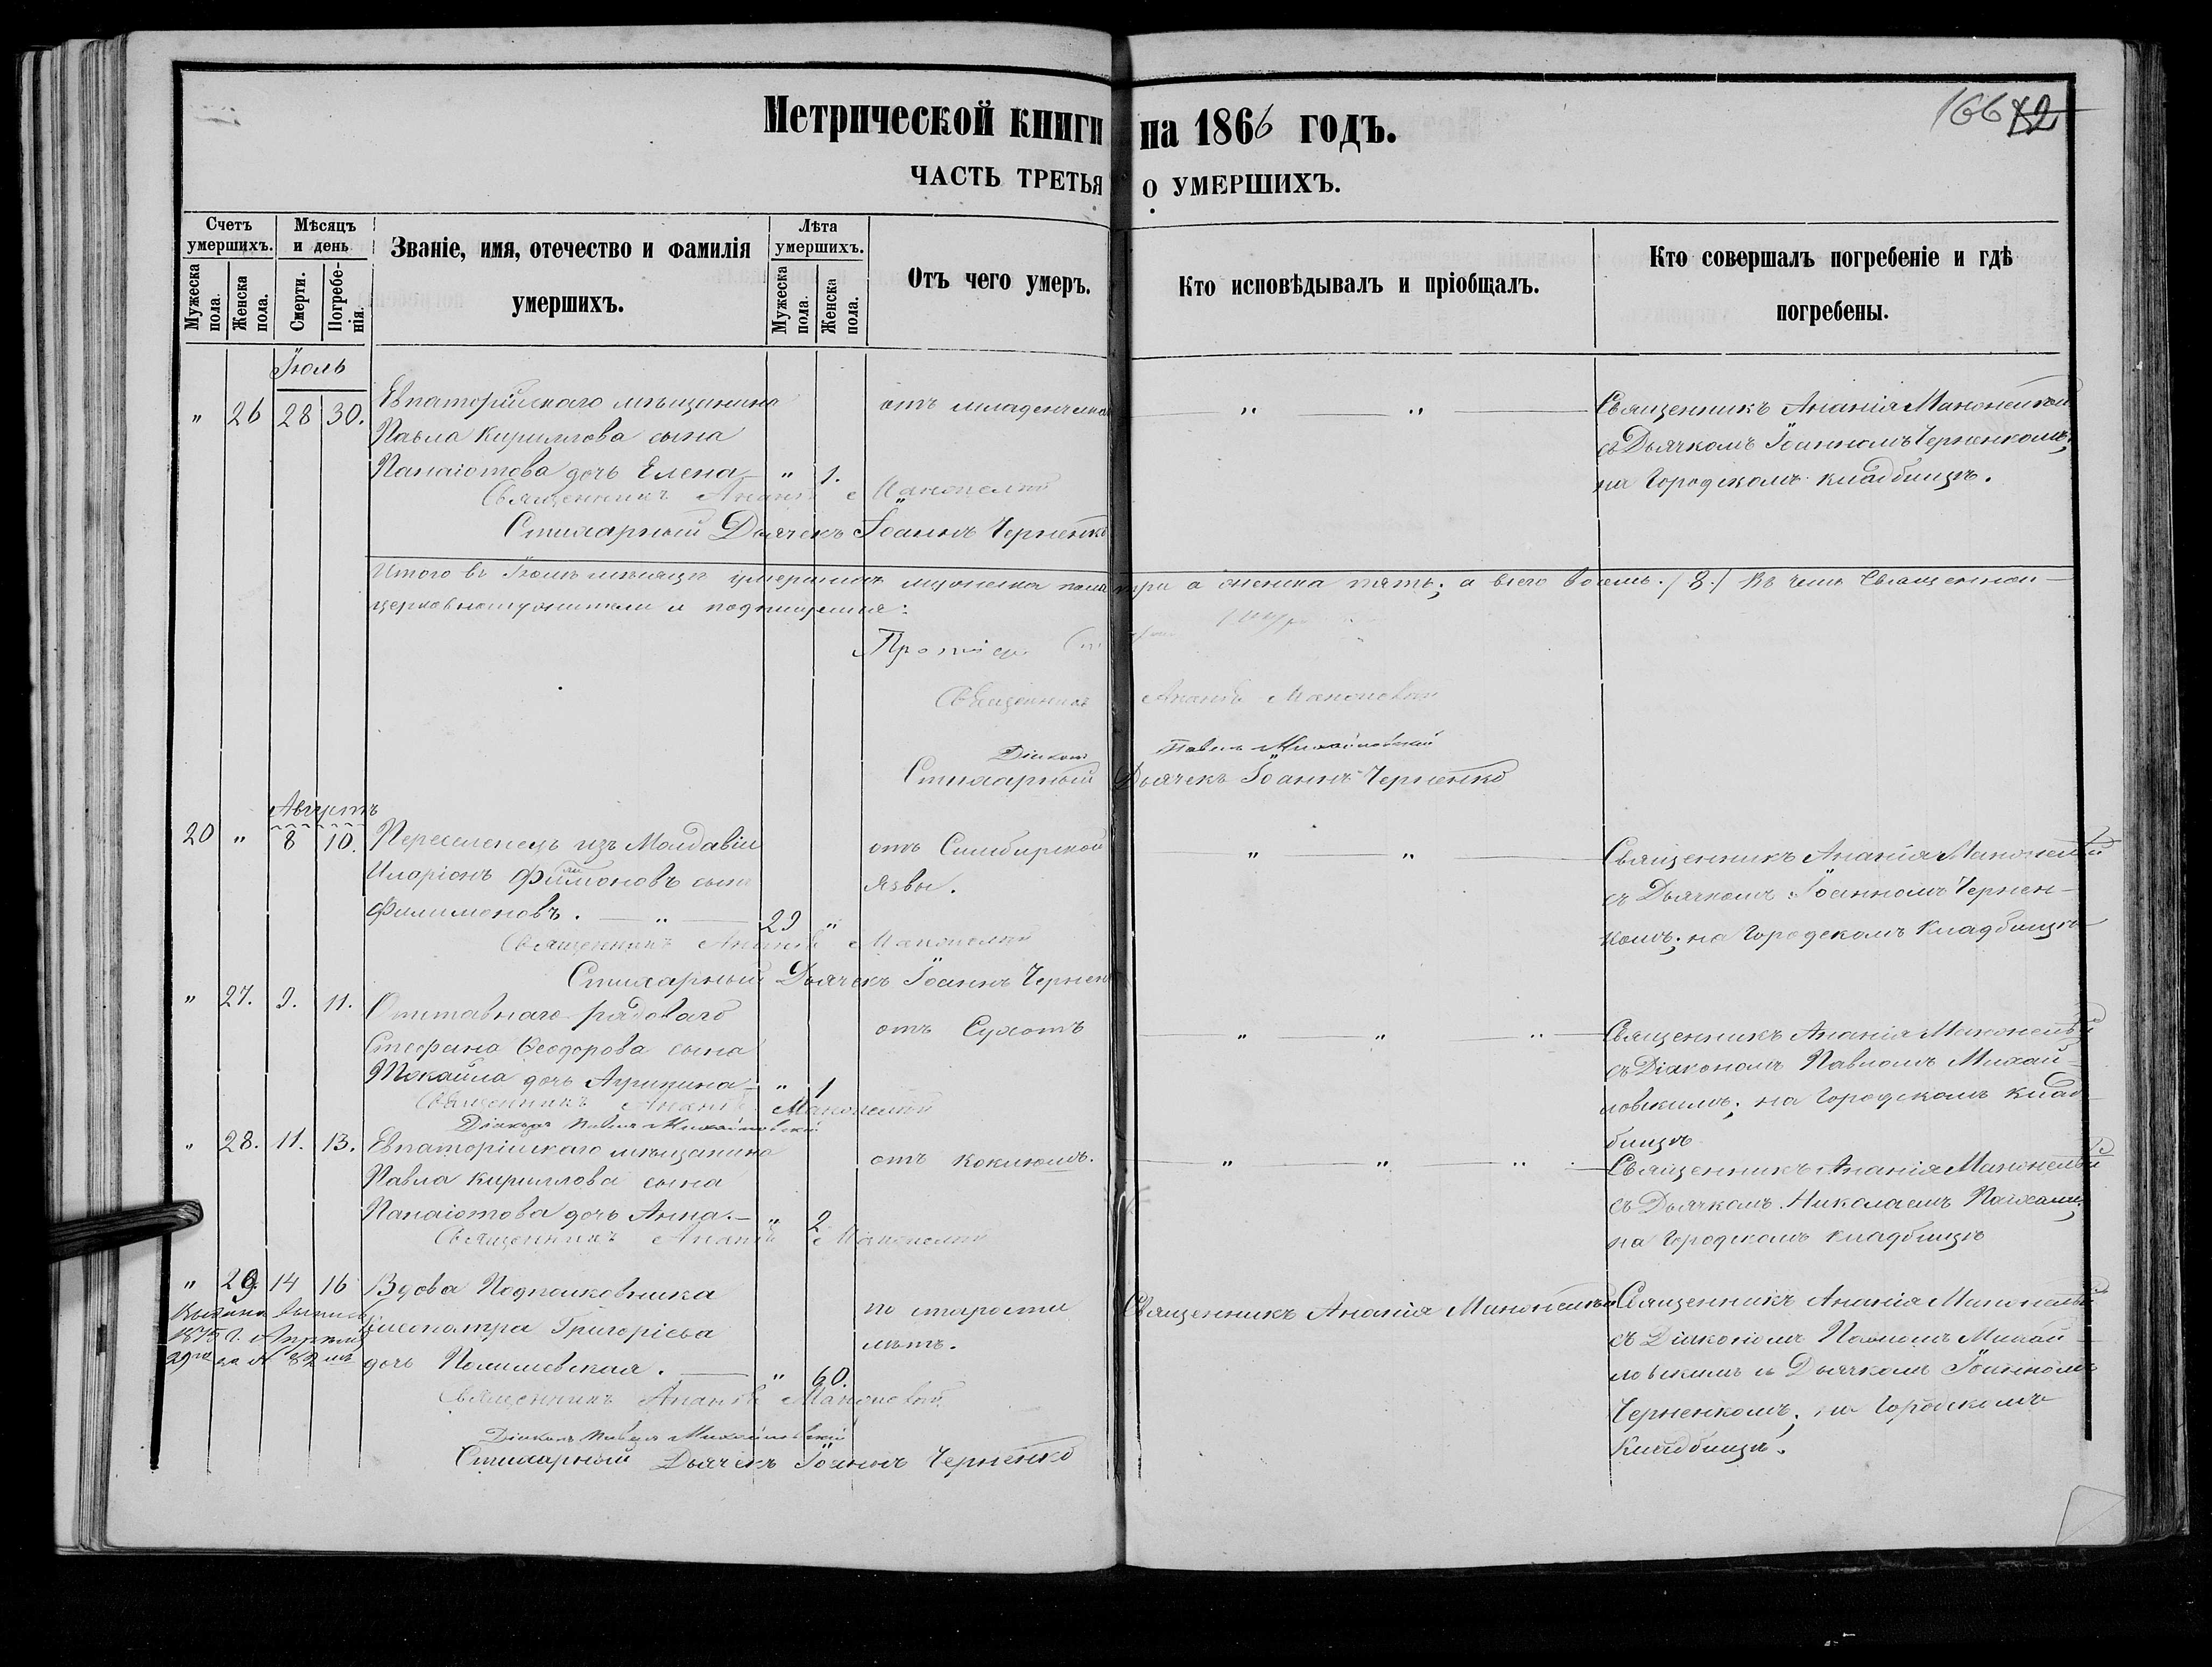 Метрической книги на 1866 годъ.
166 82
ЧАСТЬ ТРЕТЬЯ О УМЕРШИХЪ.
Счетъ умершихъ.
Мужеска пола.
Женска пола.
Мѣсяцъ и день
Смерти.
Погребенія.
Званіе, имя, отечество и фамилія умершихъ.
Лѣта умершихъ.
Мужеска пола.
Женска пола.
Отъ чего умеръ.
Кто исповѣдывалъ и пріобщалъ.
Кто совершалъ погребеніе и гдѣ погребены.
Іюль
" 26 28 30.
Евпаторійскаго мѣщанина
Павла Кириллова сына
Панаіотова дочь Елена — " 1.
отъ младенческой
— " — " —
Священникъ Ананія Маконский
съ Дьячкомъ Іоанномъ Черненкомъ;
на Городскомъ кладбищѣ.
Священникъ Ананія
Стихарный Дьячекъ Іоаннъ Черненко
Итого въ Іюлѣ мѣсяцѣ умершихъ мужеска пола три а женска пять; а всего восемь. /8./ Въ чемъ Священно-
церковнослужители и подписуемся:
Священникъ Ананія
Діаконъ Павелъ Михайловскій
Стихарный Дьячекъ Іоаннъ Черненко
Августъ
20 " 8 10.
Переселенецъ изъ Молдавіи
Иларіонъ Филимоновъ сынъ
Филимоновъ. — " — 29 "
отъ Симбирской
язвы.
" — " —
Священникъ Ананія
съ Дьячкомъ Іоанномъ Чернен-
комъ; на Городскомъ Кладбищѣ
Священникъ Ананія
Стихарный Дьячекъ Іоаннъ Чернен
" 27. 9. 11.
Отставнаго рядоваго
Стефана Ѳеодорова сына
дочь Агрипина — " 1
отъ Сухотъ
— " — " — " —
Священникъ Ананія
съ Діакономъ Павломъ Михай-
ловскимъ; на Городскомъ клад-
бищѣ
Священникъ Ананія
Діаконъ Павелъ Михайловскій
" 28. 11. 13.
Евпаторійскаго мѣщанина
Павла Кириллова сына
Панаіотова дочь Анна. — " 2
отъ коклюшъ.
— " — " — " —
Священникъ Ананія
съ Дьячкомъ Николаемъ
на Городскомъ кладбищѣ
Священникъ Ананія
" 29. 14 16
Вдова Подполковника
Клеопатра Григорієва
дочь — " 60.
по старости
лѣтъ.
Священникъ Ананія
Священникъ Ананія
съ Діакономъ Павломъ Михай-
ловскимъ и Дьячкомъ Іоанномъ
Черненкомъ; на Городскомъ
Кладбищѣ.
Священникъ Ананія
Діаконъ Павелъ Михайловскій
Стихарный Дьячекъ Іоаннъ Черненко